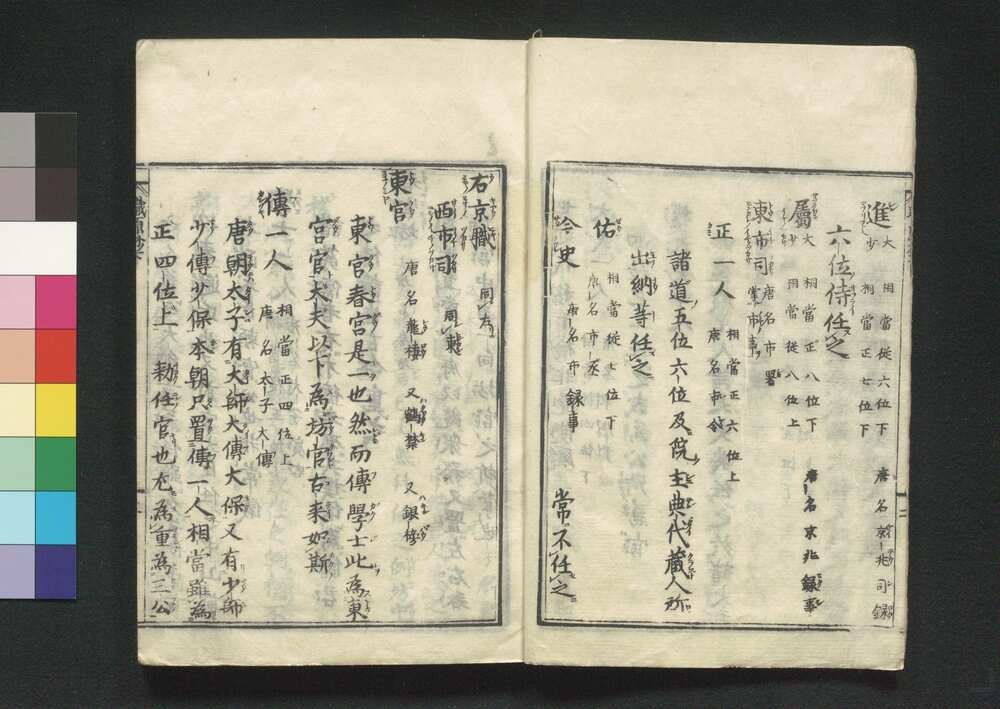 進 大 相當從六位下 唐名京兆司錄
少 相當正七位下
六位侍任之
屬 大 相當正八位下 唐名京兆錄事
少 相當從八位上
東市司 唐名市署
掌市事
正一人 相當正六位上
唐名市令
諸道五位六位及院主典代蔵人所
出納等任之
佑 相當從七位下
唐名市丞
令史 唐名市録事 常不任之
右京職 同左
西市司 同東
東宮 唐名龍樓 又鶴禁 又銀榜
東宮春宮是一也然而傅學士此為東
宮官大夫以下為坊官古来如斯
傅一人 相當正四位上
唐名太子大傅
唐朝太子有大師大傅大保又有少師
少傅少保本朝只置傅一人相當雖為
正四位上勅任官也尤為重為三公